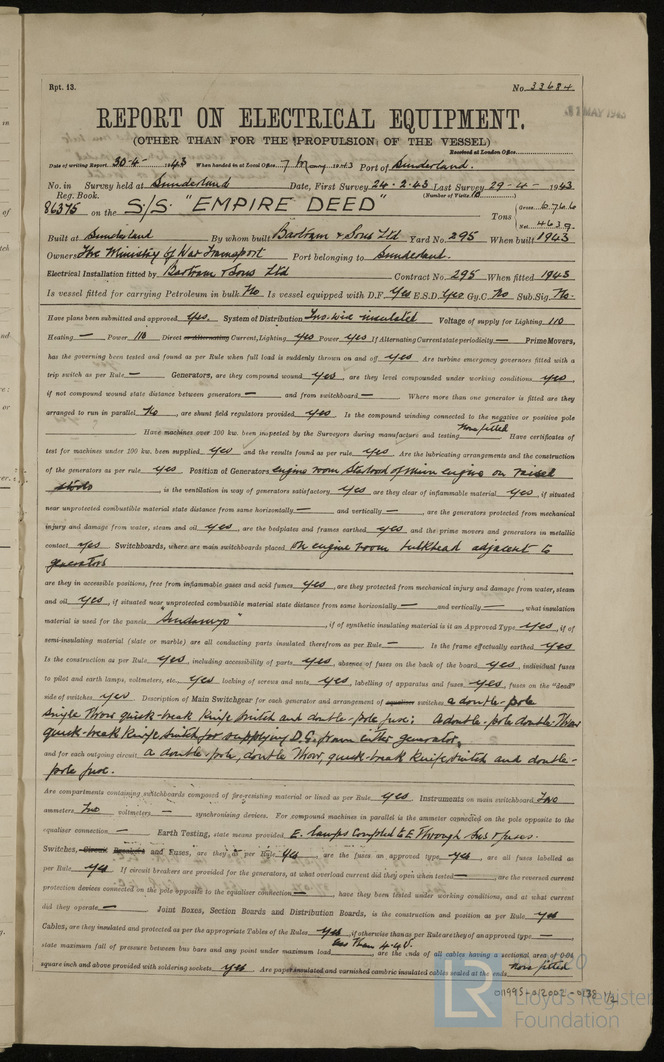 Rpt. 13.
No. 33684
MAY 1943
REPORT ON ELECTRICAL EQUIPMENT.
(OTHER THAN FOR THE PROPULSION OF THE VESSEL)
Received at London Office
Date of writing Report 30-4- 1943 When handed in at Local Office 7 May 1943 Port of Sunderland.
No. in Survey held at Sunderland Date, First Survey 24.2.43 Last Survey 29-4- 1943
Reg. Book. (Number of Visits
86375 on the S/S "EMPIRE DEED" Tons Gross 6766 Net 4639
Built at Sunderland By whom built Bartram & Sons Ltd Yard No. 295 When built 1943
Owners The Ministry of War Transport Port belonging to Sunderland.
Electrical Installation fitted by Bartram & Sons Ltd Contract No. 295 When fitted 1943
Is vessel fitted for carrying Petroleum in bulk No Is vessel equipped with D.F. Yes E.S.D. Yes Gy.C. No Sub.Sig. No.
Have plans been submitted and approved yes. System of Distribution Two-wire insulated Voltage of supply for Lighting 110
Heating — Power 110 Direct or Alternating Current, Lighting yes Power yes If Alternating Current state periodicity — Prime Movers,
has the governing been tested and found as per Rule when full load is suddenly thrown on and off yes Are turbine emergency governors fitted with a
trip switch as per Rule — Generators, are they compound wound yes, are they level compounded under working conditions yes,
if not compound wound state distance between generators — and from switchboard — Where more than one generator is fitted are they
arranged to run in parallel No, are shunt field regulators provided yes Is the compound winding connected to the negative or positive pole
Have machines over 100 kw. been inspected by the Surveyors during manufacture and testing None fitted Have certificates of
test for machines under 100 kw. been supplied yes and the results found as per rule yes Are the lubricating arrangements and the construction
of the generators as per rule yes Position of Generators engine room Starboard of main engine on raised
, is the ventilation in way of generators satisfactory yes are they clear of inflammable material yes, if situated
near unprotected combustible material state distance from same horizontally — and vertically —, are the generators protected from mechanical
injury and damage from water, steam and oil yes, are the bedplates and frames earthed yes and the prime movers and generators in metallic
contact yes Switchboards, where are main switchboards placed on engine room bulkhead adjacent to
generators
are they in accessible positions, free from inflammable gases and acid fumes yes, are they protected from mechanical injury and damage from water, steam
and oil yes, if situated near unprotected combustible material state distance from same horizontally — and vertically —, what insulation
material is used for the panels "Sindanyo", if of synthetic insulating material is it an Approved Type yes, if of
semi-insulating material (slate or marble) are all conducting parts insulated therefrom as per Rule — Is the frame effectually earthed yes
Is the construction as per Rule yes, including accessibility of parts yes, absence of fuses on the back of the board yes, individual fuses
to pilot and earth lamps, voltmeters, etc. yes locking of screws and nuts yes, labelling of apparatus and fuses yes, fuses on the "dead"
side of switches yes Description of Main Switchgear for each generator and arrangement of equaliser switches a double-pole
single throw quick-break knife switch and double-pole fuse; a double-pole double-throw
quick-break knife switch for supplying D.G. from either generator,
and for each outgoing circuit a double-pole, double throw, quick-break knife switch and double-
pole fuse.
Are compartments containing switchboards composed of fire-resisting material or lined as per Rule yes Instruments on main switchboard Two
ammeters Two voltmeters — synchronising devices. For compound machines in parallel is the ammeter connected on the pole opposite to the
equaliser connection — Earth Testing, state means provided E. lamps coupled to E through Sws & fuses.
Switches, Circuit Breakers and Fuses, are they as per Rule yes, are the fuses an approved type yes, are all fuses labelled as
per Rule yes If circuit breakers are provided for the generators, at what overload current did they open when tested —, are the reversed current
protection devices connected on the pole opposite to the equaliser connection —, have they been tested under working conditions, and at what current
did they operate — Joint Boxes, Section Boards and Distribution Boards, is the construction and position as per Rule yes
Cables, are they insulated and protected as per the appropriate Tables of the Rules yes, if otherwise than as per Rule are they of an approved type —
state maximum fall of pressure between bus bars and any point under maximum load less than 4.4V., are the ends of all cables having a sectional area of 0.04
square inch and above provided with soldering sockets yes Are paper insulated and varnished cambric insulated cables sealed at the ends None fitted
© 2020
Lloyd's Register
Foundation
LR
011995-012002-0138 1/2